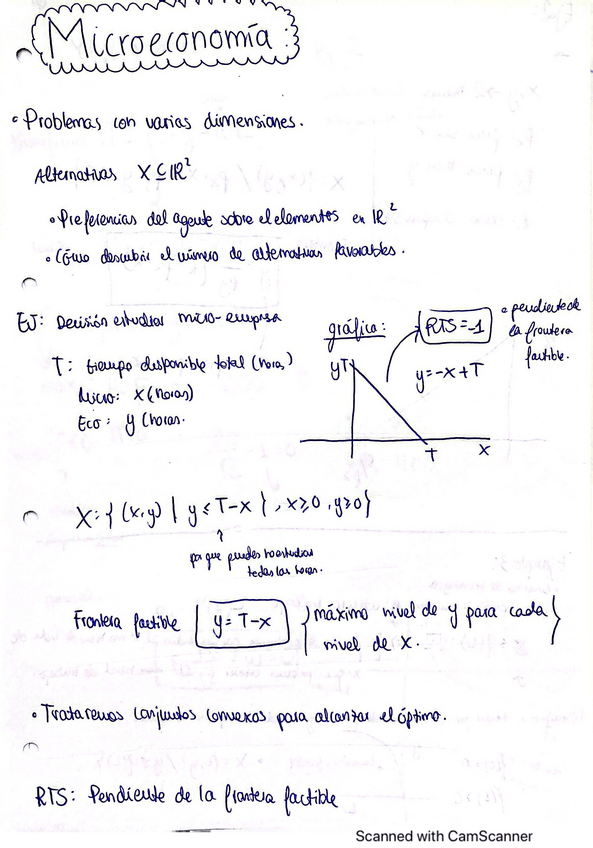 Microeconomía:
• Problemas con varias dimensiones.
Alternativas X ⊆ ℝ²
• Preferencias del agente sobre el elementos en ℝ²
• Cómo descubrir el número de alternativas favorables.
EJ: Decisión estudiar micro-empresa
T: tiempo disponible total (horas)
Micro: x (horas)
Eco: y (horas.
gráfica:
RTS=-1
• pendiente de
la frontera
factible.
yT
y=-x+T
T
x
X: { (x,y) | y ≤ T-x }, x≥0, y≥0}
↑
porque puedes no estudiar
todas las horas.
Frontera factible y=T-x { máximo nivel de y para cada
nivel de x. }
• Trataremos conjuntos convexos para alcanzar el óptimo.
RTS: Pendiente de la frontera factible
Scanned with CamScanner